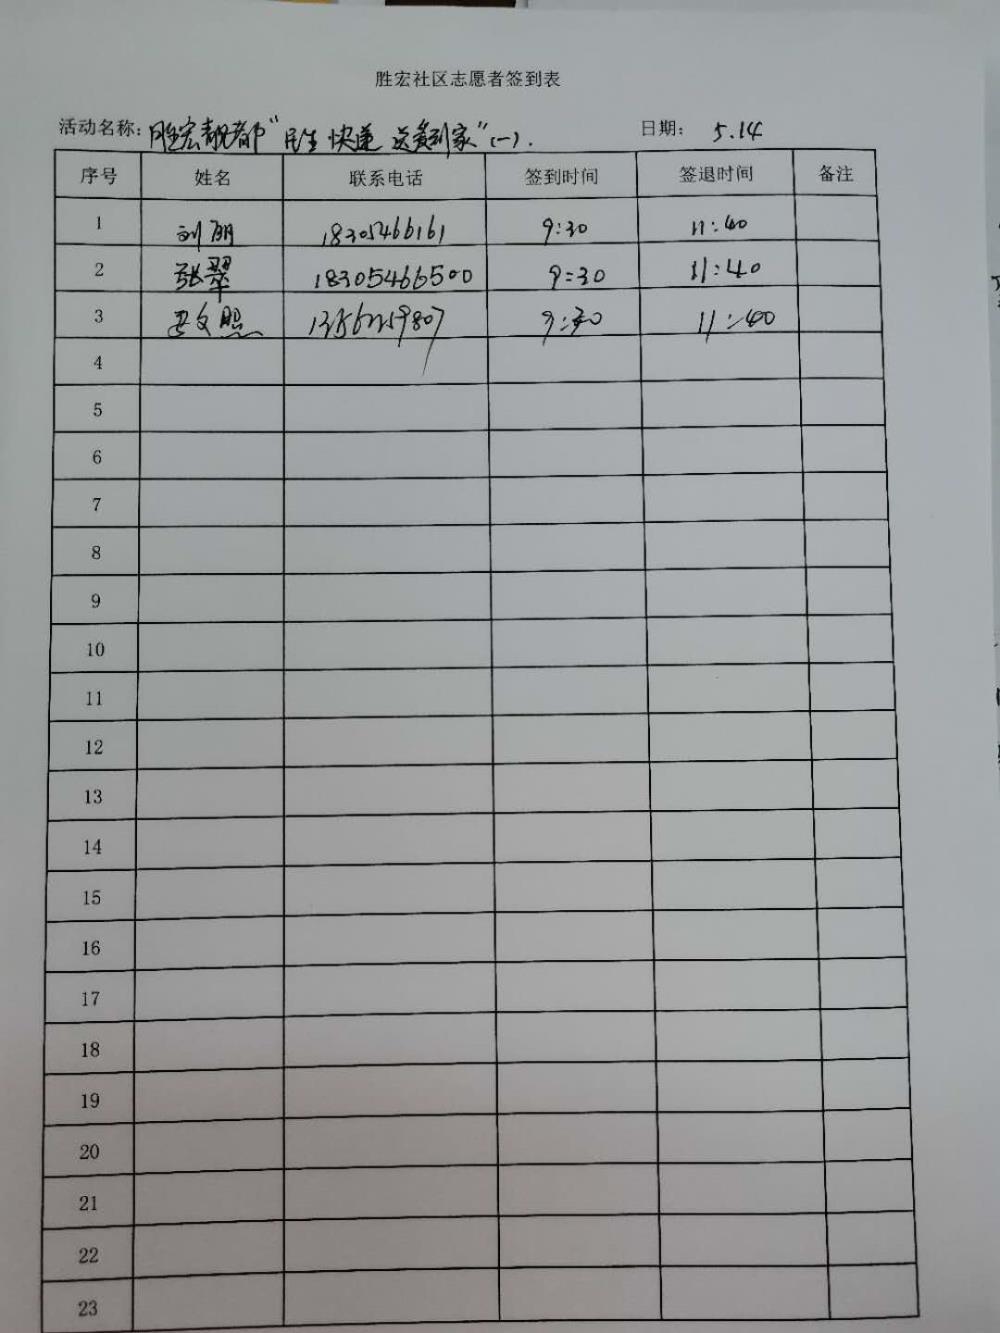 胜宏社区志愿者签到表
活动名称：胜宏靓都“民生快递 送餐到家”（一）. 日期： 5.14
序号 姓名 联系电话 签到时间 签退时间 备注
1 刘丽 18305466161 9:30 11:40
2 张翠 18305466500 9:30 11:40
3 文照 9:30 11:40
4
5
6
7
8
9
10
11
12
13
14
15
16
17
18
19
20
21
22
23